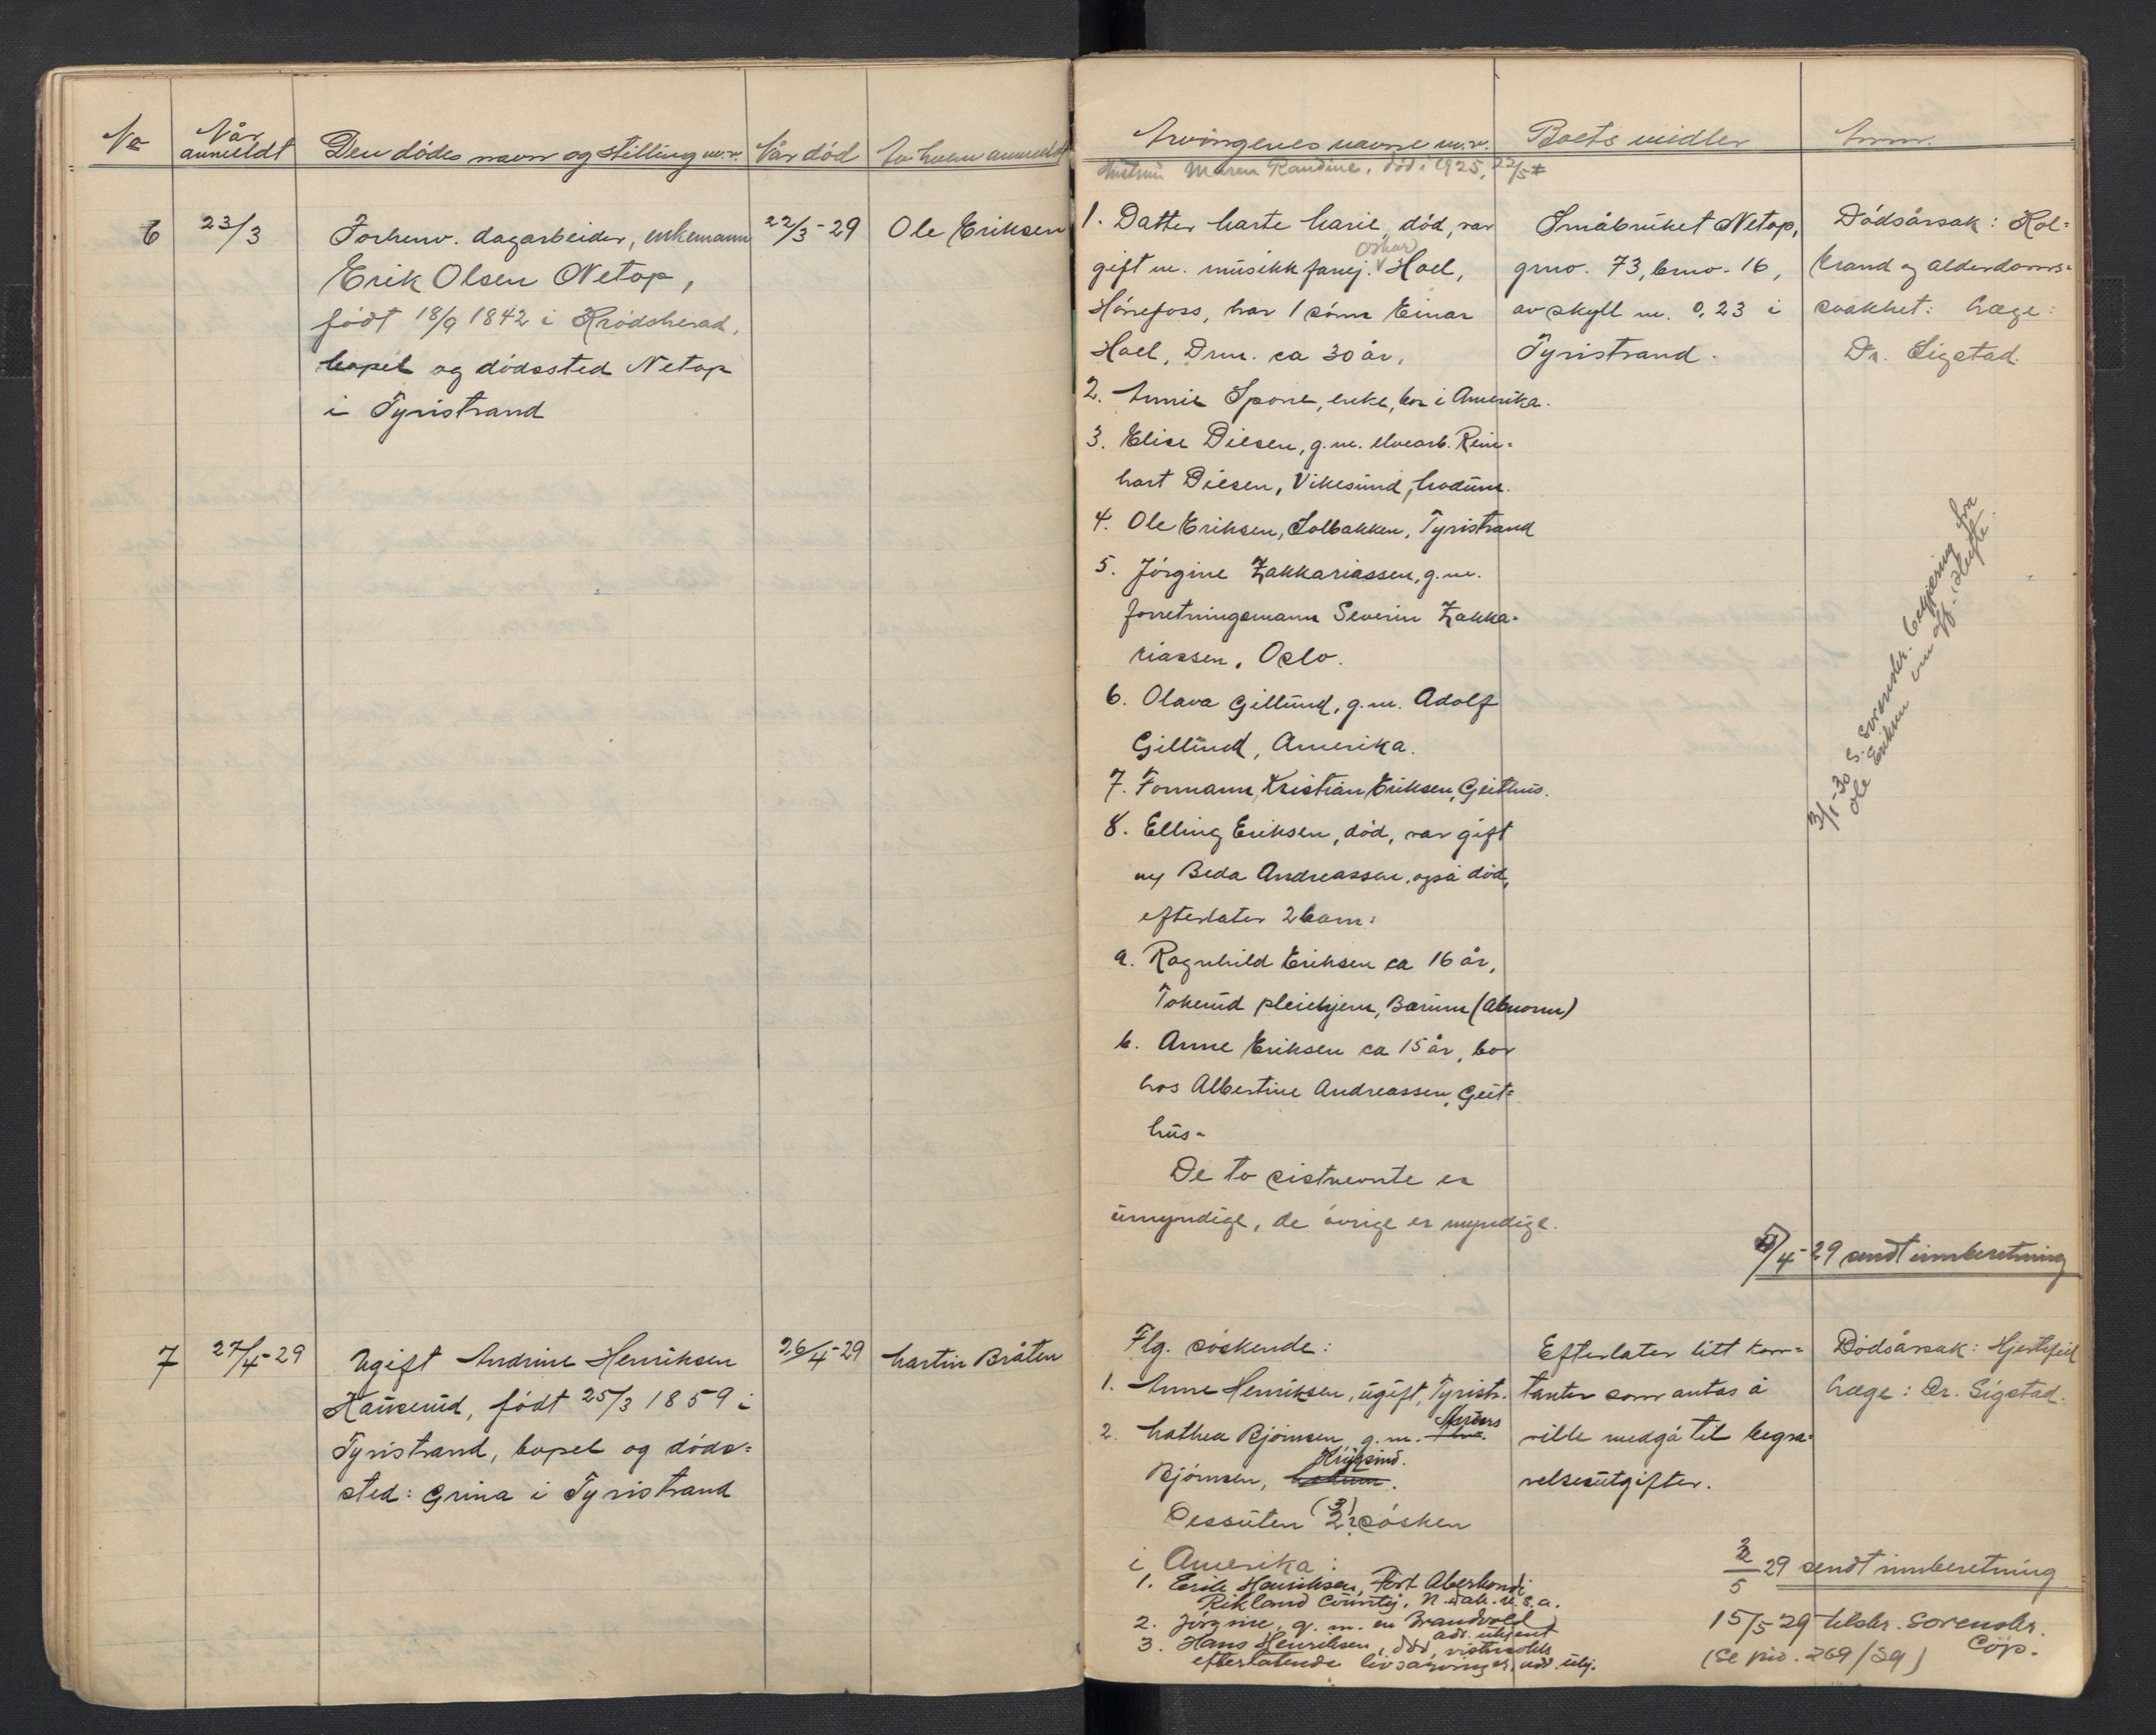 No
Når anmeldt
Den dødes navn og stilling m.v.
Når død
Av hvem anmeldt
6
23/3
Forhenv. dagarbeider, enkemann
Erik Olsen Netop,
født 18/9 1842 i Krødsherad,
bopel og dødssted Netop
i Tyristrand
22/3-29
Ole Eriksen
7
27/4-29
Ugift Andrine Henriksen
Hauserud, født 25/3 1859 i
Tyristrand, bopel og døds-
sted: Grina i Tyristrand
26/4-29
Martin Bråten
Arvingenes navne m.v.
Boets midler
Anm.
Hustru Maren Randine, død i 1925, 22/5
1. Datter Marte Marie, død, var
gift m. musikkfanej. Oskar Hoel,
Hönefoss, har 1 sönn Einar
Hoel, Drm. ca 30 år.
2. Annie Spone, enke, bor i Amerika.
3. Elise Diesen, g.m. elvearb. Rein-
hart Diesen, Vikesund, Modum.
4. Ole Eriksen, Solbakken, Tyristrand
5. Jörgine Zakkariassen, g.m.
forretningsmann Severin Zakka-
riassen, Oslo.
6. Olava Gillund, g.m. Adolf
Gillund, Amerika.
7. Formann Kristian Eriksen, Geithus.
8. Elling Eriksen, død, var gift
m/ Beda Andreassen, også död,
efterlater 2 barn:
a. Ragnhild Eriksen ca 16 år,
Tokerud pleiehjem, Bærum (Abnorm)
b. Anne Eriksen ca 15 år, bor
hos Albertine Andreassen, Geit-
hus-
De to sistnevnte er
umyndige, de övrige er myndige.
Småbruket Netop,
grno. 73, bno. 16,
av skyll m. 0,23 i
Tyristrand.
Dødsårsak: Kol-
brand og alderdoms-
svakhet: Læge:
Dr. Sigstad
3/1-30 S. Sorenskr. begjering fra
Ole Eriksen om off. skifte.
/4-29 sendt innberetning
Flg. söskende:
1. Anne Henriksen, ugift, Tyristr.
2. Mathea Björnsen g.m.
Björnsen,
Dessuten 2 (3) søsken
i Amerika:
1. Erik Henriksen, Port
Rikland County, N. Dak. U.S.A.
2. Jörgine, g. m. en Brandvold
adr. ukjent
3. Hans Henriksen, död, vistnokk
efterlatende livsarvinger, adr. ukj.
Efterlater litt kon-
tanter som antas å
ville medgå til begra-
velsesutgifter.
Dödsårsak: Hjertefeil
Læge: Dr. Sigstad.
2/5 29 sendt innberetning
15/5 29 tilskr. Sorenskr.
(Se 269/29) Cop.